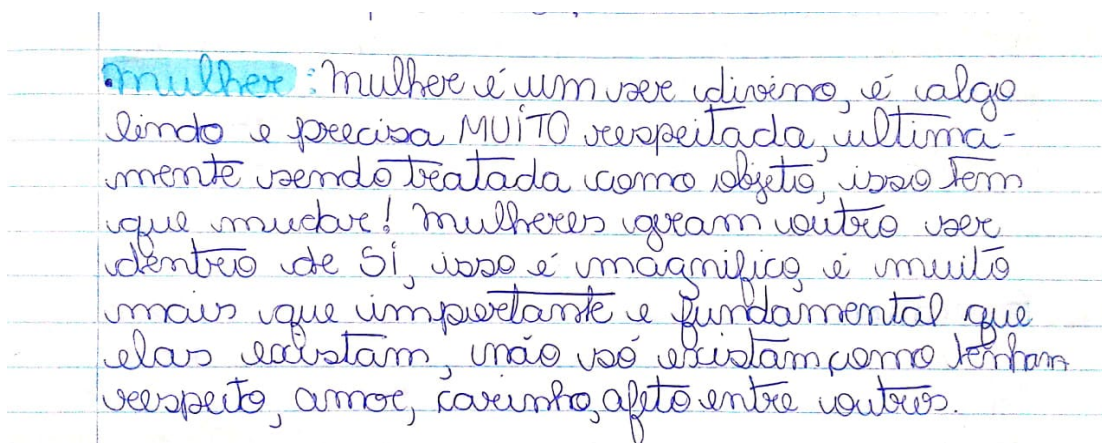 mulher: Mulher é um ser divino, é algo
lindo e precisa MUÍTO respeitada, ultima-
mente sendo tratada como objeto, isso tem
que mudar! Mulheres geram outro ser
dentro de SÍ, isso é magnifico, é muito
mais que importante e fundamental que
elas existam, não só existam como tenham
respeito, amor, carinho, afeto entre outros.